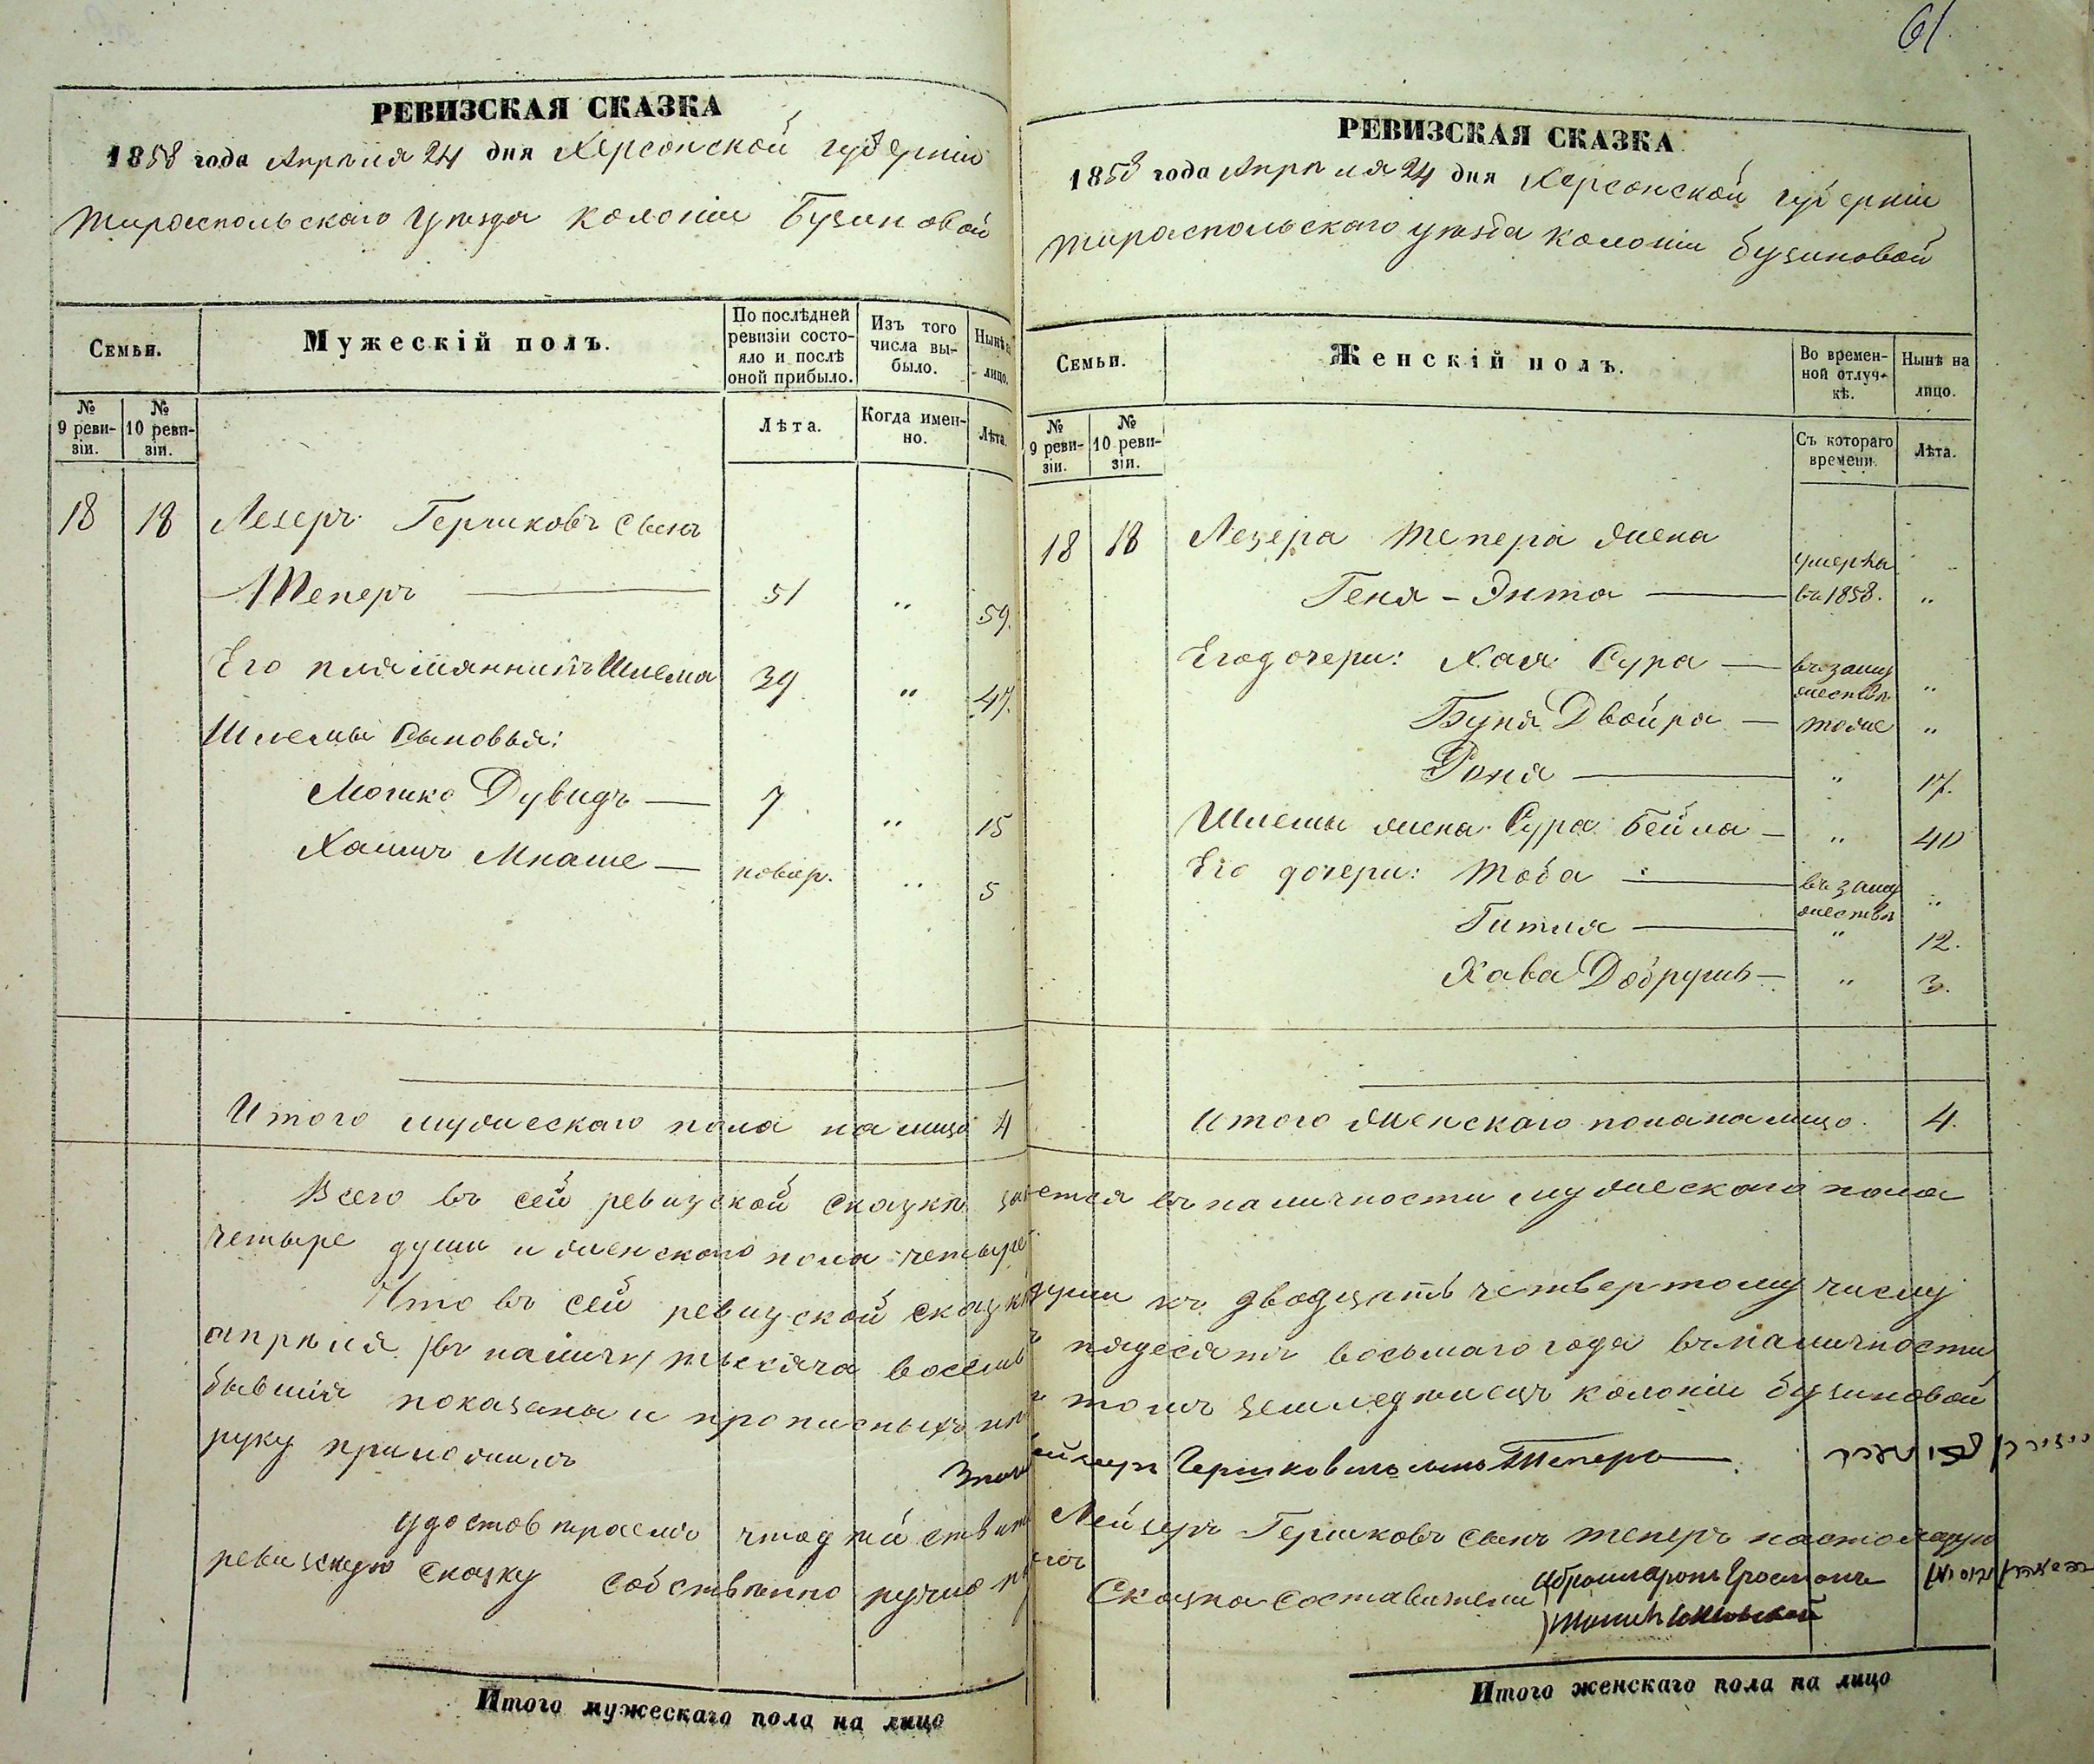 61.
РЕВИЗСКАЯ СКАЗКА
1858 года Апрѣля 24 дня Херсонской губерніи
Тираспольскаго уѣзда колоніи Бузиновой
Семьи.
Мужескій полъ.
По послѣдней ревизіи состояло и послѣ оной прибыло.
Изъ того числа выбыло.
Нынѣ на лицо.
№ 9 ревизіи.
№ 10 ревизіи.
Лѣта.
Когда именно.
Лѣта.
18 18 Лезеръ Гершковъ сынъ
Теперъ 51 " 59.
Его племянникъ Шлема 39 " 47.
Шлемы Сыновья:
Мошко Дувидъ 7 " 15
Хаимъ Мнаше новор. " 5
Итого мужескаго пола на лицо 4
РЕВИЗСКАЯ СКАЗКА
1858 года Апрѣля 24 дня Херсонской губерніи
Тираспольскаго уѣзда колоніи Бузиновой
Семьи.
Женскій полъ.
Во временной отлучкѣ.
Нынѣ на лицо.
№ 9 ревизіи.
№ 10 ревизіи.
Съ котораго времени.
Лѣта.
18 18 Лезера Тепера жена
Геня-Энта умерла въ 1858. "
Его дочери: Хая Сура въ замужествѣ "
Буня Двойра тоже "
Роня " 17.
Шлемы жена Сура Бейла " 40
Его дочери: Тоба въ замужествѣ "
Гитля " 12.
Хава Добрушъ " 3.
Итого женскаго пола на лицо. 4.
Всего въ сей ревизской сказкѣ значется въ наличности мужескаго пола
четыре души и женскаго пола четыре
Что въ сей ревизской сказкѣ души къ двадцать четвертому числу
апрѣля тысяча восемь пядесятъ восьмаго года въ наличности
бывшія показаны и прописныхъ нѣтъ томъ земледѣлецъ колоніи Бузиновой
руку приложилъ Гершковъ сынъ Теперъ
удостовѣряемъ что Лейзеръ Гершковъ сынъ Теперъ настоящую
ревизскую сказку собственно ручно
Сказка составители
Итого мужескаго пола на лицо
Итого женскаго пола на лицо